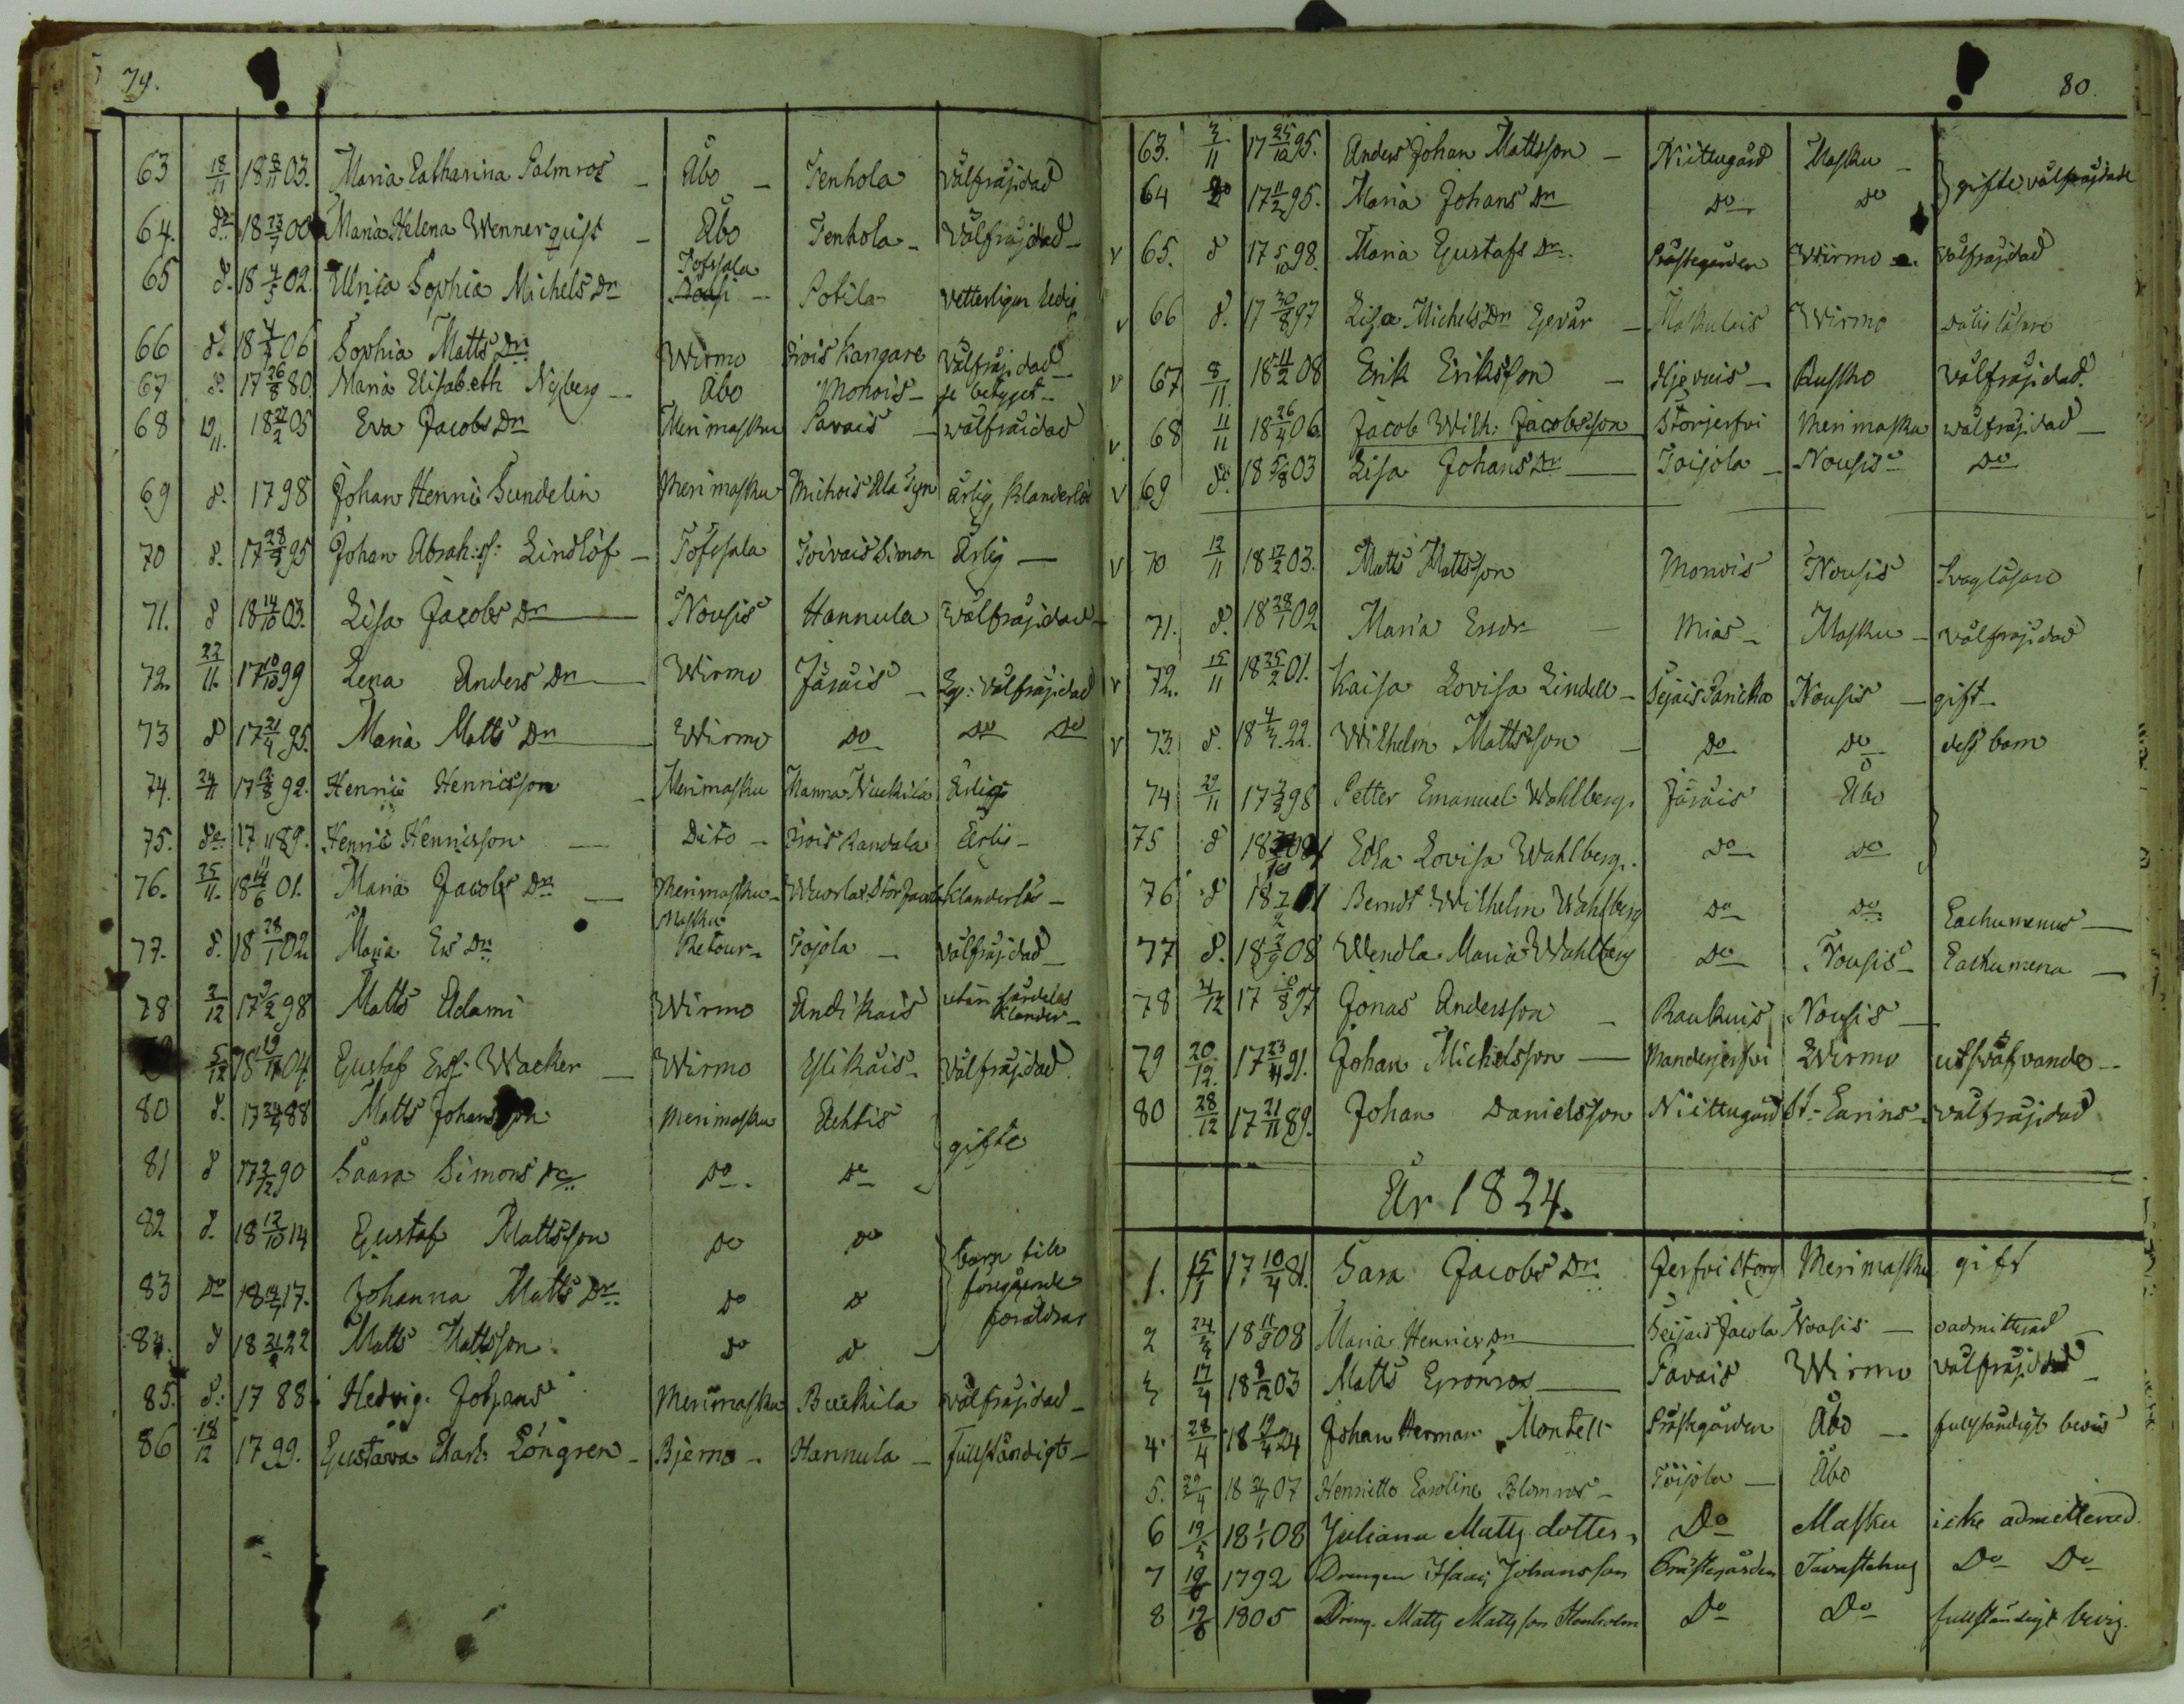 79.
63 18/11 18 8/11 03. Maria Catharina Palmros - Åbo - Tenhola välfräjdad
64. do 18 23/7 00 Maria Helena Wennerquist - Åbo Tenhola - Välfräjdad -
65 d. 18 4/5 02. Ulrica Sophia Michels Dr Tofsala Potila - vetterligen ledig
66 d. 18 4/4 06 Sophia Matts Dr Wirmo Kangare Välfräjdad
67 d. 17 26/8 80. Maria Elisabeth Nyberg - Åbo Monois - se betyget -
68 19/11. 18 22/2 05 Eva Jacobs Dr Merimasku Pavais - välfräidad
69 d. 1798 Johan Henric Sundelin Merimasku Mihois Ala Syn ärlig, Klanderlös
70 d. 17 28/9 95 Johan Abrah: sf: Lindlöf - Tofsala Toivais Simon Ärlig -
71. d 18 14/10 03. Lisa Jacobs Dr Nousis Hannula Välfräjdad -
72. 22/11. 17 10/10 99 Lena Anders Dr Wirmo Järäis - Välfräjdad
73 d 17 21/4 95. Maria Matts Dr Wirmo Do Do Do
74. 24/11 17 12/8 92. Henric Henricsson - Merimasku Manna Nuckila Ärlig
75. do 17 11 89. Henric Henricsson - Dito - Randala Ärlig -
76. 25/11. 18 14/6 01. Maria Jacobs Dr - Merimasku - Klanderlös -
77. d. 18 28/1 02 Maria Ers Dr Masku Retour - Tojola - välfräjdad -
78 2/12 17 9/2 98 Matts Adami Wirmo Andikais utan särdeles klander -
5/12 18 19/11 04. Gustaf Ersf: Wacker - Wirmo Ylikäis - Välfräjdad
80 d. 17 24/4 88 Matts Johansson Merimasku Ahtis gifte
81 d 17 9/12 90 Saara Simons Dr Do Do
82 d. 18 12/10 14 Gustaf Mattsson Do Do barn till
83 Do 18 17. Johanna Matts Dr Do D föregående
84. d 18 21/2 22 Matts Mattsson Do D föräldrar
85. d: 1788 Hedvig Johans Merimasku Buckila välfräjdad -
86 18/12 1799. Gustava Charl: Löngren - Bjerno - Hannula - fullständigt -
80.
63. 3/11 17 25/10 95. Anders Johan Mattsson - Niittugård Masku - gifte, välfräjdade
64 Do 17 11/2 95. Maria Johans Dr Do Do
v 65. d 17 5/10 98. Maria Gustafs Dr. Prästegården Wirmo - välfräjdad
v 66 d. 17 30/8 97 Lisa Michels Dr Gevär - Maskulais Wirmo dålig läsare
v 67 8/11. 18 11/2 08 Erik Eriksson - Hjevuis - Rusko Välfräjdad.
v 68 11/11 18 26/4 06 Jacob Wilh: Jacobsson Storjerfvi Merimasku välfräjdad -
v 69 do. 18 5/8 03 Lisa Johans Dr - Toijola - Nousis Do
v 70 12/11 18 17/2 03. Matts Mattsson Monois Nousis Svag läsare
71. d. 18 28/1 02 Maria Ersdr - Mias - Masku - Välfräjdad
v 72. 15/11 18 25/2 01. Kaisa Lovisa Lindell - Seijais Nousis - gift -
v 73. d. 18 4/7 22. Wilhelm Mattsson - Do Do dess barn
74 29/11 17 7/3 98 Petter Emanuel Wahlberg. Järäis Åbo
75 d 18 Edla Lovisa Wahlberg. Do Do
76 d 18 7/2 11 Berndt Wilhelm Wahlberg Do Do Cachumenus -
77 d. 18 2/9 08 Wendla Maria Wahlberg Do Nousis - Cachumena -
78 4/12 17 10/8 97 Jonas Andersson - Raukuis Nousis -
79 20/12. 17 23/4 91. Johan Michelsson - Manderjerfvi Wirmo utsväfvande -
80 28/12 17 21/11 89. Johan Danielsson Niittugård St: Carins - välfräjdad
År 1824.
1. 15/1 17 10/4 81. Sara Jacobs Dr. Jerfvi Storg Merimasku gift
2 24/3 18 11/3 08 Maria Henrics Dr Seijais Jacola Nousis - oadmitterad -
3 17/4 18 8/12 03 Matts Grönros - Pavais Wirmo Välfräjdad -
4. 28/4 18 12/4 24 Johan Herman Montell Prästgården Åbo - fullständigt bevis
5. 29/4 18 21/11 07 Henrietta Carolina Blomros - Töijola - Åbo
6 19/5 18 1/1 08 Juliana Matts dotter, Do Masku icke admitterad.
7 19/6 1792 Drängen Isaac Johansson Prästegården Tavastehus Do Do
8 19/6 1805 Dreng. Matts Mattsson Stenholm Do Do fullständigt bevis.